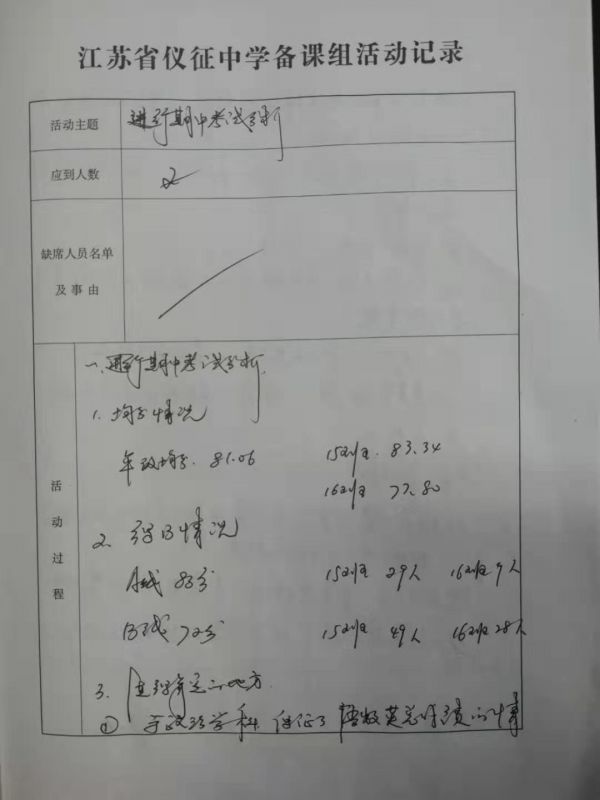 江苏省仪征中学备课组活动记录
活动主题 进行期中考试分析
应到人数 2
缺席人员名单
及事由
活动过程
一、进行期中考试分析
1. 均分情况
年级均分. 81.06 15班. 83.34
16班 77.80
2. 得B情况
A线 83分 15班 29人 16班 9人
B线 72分 15班 49人 16班 28人
3. 值得肯定的地方
① 政治学科 保证了语数英总成绩的情